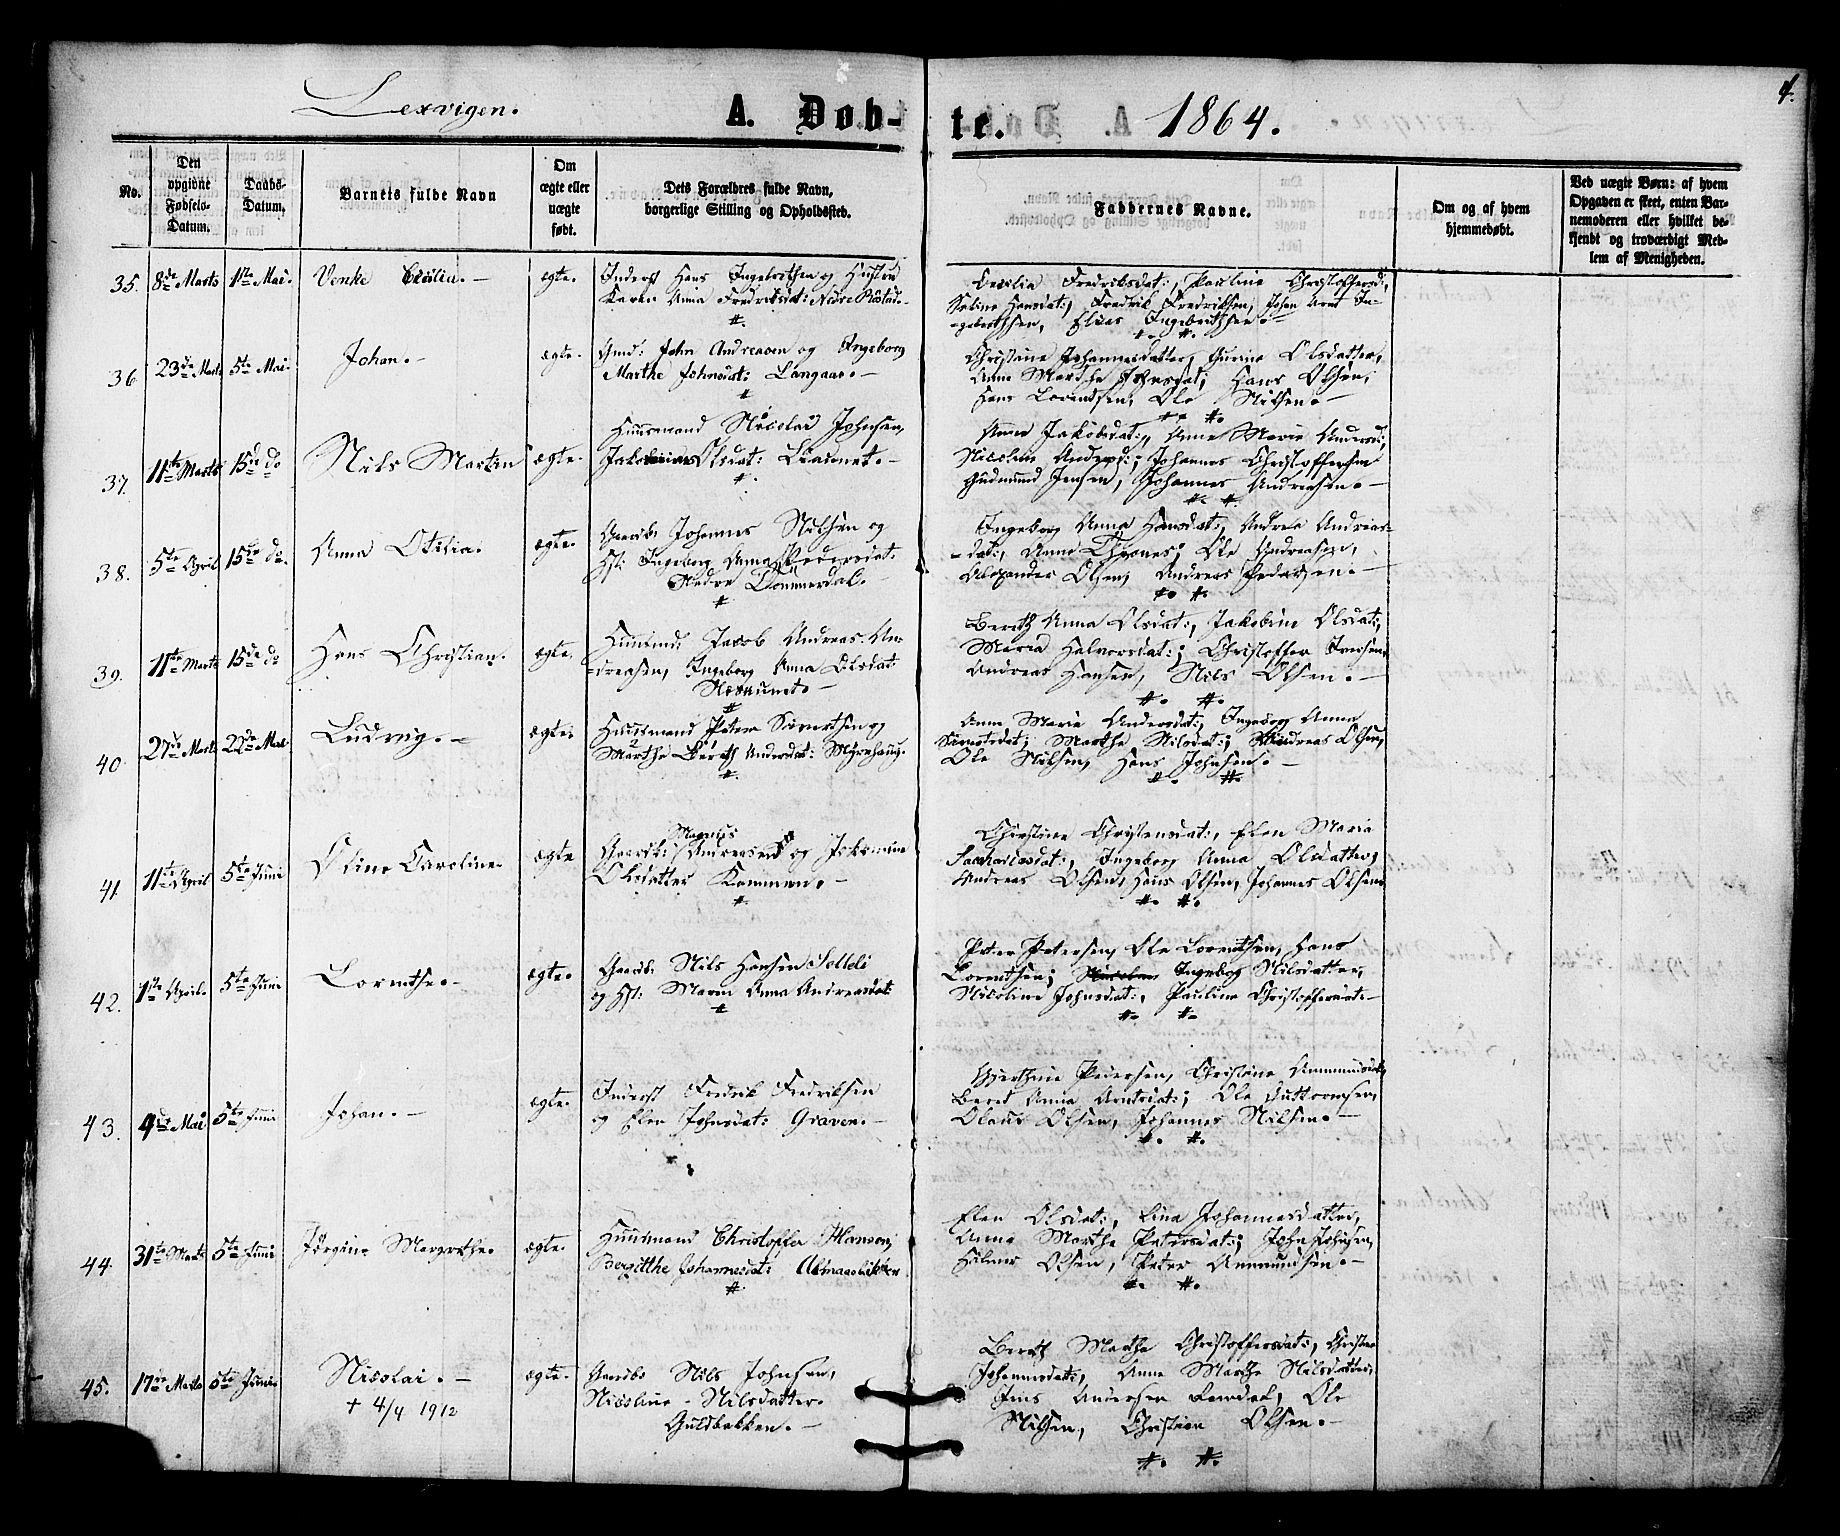 4.
Lexvigen. A. Døb- te. 1864.
No.
Den opgivne Fødsels-Datum.
Daabs-Datum.
Barnets fulde Navn
Om ægte eller uægte født.
Dets Forældres fulde Navn, borgerlige Stilling og Opholdssted.
Faddernes Navne.
Om og af hvem hjemmedøbt.
Ved uægte Børn: af hvem Opgaven er skeet, enten Barnemoderen eller hvilket bekjendt og troværdigt Medlem af Menigheden.
35. 8de Marts 1ste Mai. Venke Cecilia.- ægte. Inderst Hans Ingebrithsen og Hustru
Karen Anna Fredriksdat: Nedre
Cecilia Fredriksdat:, Pauline Christoffersd:,
Hansdat:, Fredrik Fredriksen, Johan Arnt In-
gebrithsen, Elias Ingebrithsen.-
36 23de Marts 5te Mai. Johan.- ægte. Gmd: John Andreasen og Ingeborg
Marthe Johnsdat: Langaas.-
Christine Johannesdatter, Gurine Olsdatter,
Anne Marthe Johnsdat; Hans Olsen,
Hans Lorentsen, Ole Nilsen.-
37. 11te Marts 15de do Nils Martin ægte. Huusmand Nicolai Johnsen,
Olsdat:
Anne Jakobsdat:, Anne Marie Andersd:,
Nicoline Andersd:; Johannes Christoffersen
Gudmund Jensen, Johannes Andreasen.-
38. 5te April 15de do. Anna Otilia. ægte. Gaardb: Johannes Nilsen og
Hst: Ingeborg Anna Pedersdat:
Nedre
Ingeborg Anna Hansdat:, Andrea Andreas-
dat:, Anne Ole Andreasen,
Alexander Olsen, Andreas Pedersen.-
39. 11te Marts 15de do Hans Christian. ægte. Huusmd: Jacob Andreas An-
dreasen, Ingeborg Anna Olsdat:
Bereth Anna Olsdat:, Jakobine Olsdat:,
Maria Halvorsdat:; Christoffer Jensen,
Andreas Hansen, Nils Olsen.-
40 27de Marts 22de Mai Ludvig.- ægte. Huusmand Peter Sivertsen og
Marthe Bereth Andersdat: Myrhaug.
Anne Marie Andersdat:, Ingeborg Anna
Sivertsdat; Marthe Nilsdat:; Andreas Olsen,
Ole Nilsen, Hans Johnsen.-
41 11te April 5te Juni Oline Caroline. ægte Gaardb: Magnus Andreasen og Jakomine
Olsdatter
Christine Christensdat:, Elen Maria
Sachariasdat:, Ingeborg Anna Olsdatter,
Andreas Olsen, Hans Olsen, Johannes Olsen.
42. 1ste April. 5te Juni Lorentse.- ægte. Gaardb: Nils Hansen Selleli
og Hst: Maren Anna Andreasdat:
Peter Petersen, Ole Lorentsen, Hans
Lorentsen; Ingeborg Nilsdatter,
Nicoline Johnsdat:, Pauline Christoffersdat.-
43. 4de Mai 5te Juni Johan.- ægte. Inderst Fredrik Fredriksen
og Elen Johnsdat: Graven.-
Pedersen, Christine
Beret Anna Arntsdat:; Ole Guttormsen,
Olaus Olsen, Johannes Nilsen.-
44. 31te Marts 5te Juni Jørgine Margrethe. ægte. Huusmand Christoffer Hansen,
Bergitthe Johannesdat:
Elen Olsdat:, Lina Johannesdatter,
Anne Marthe Petersdat:; John Johnsen,
Hilmer Olsen, Peter Ammundsen.-
45. 17de Marts 5te Juni. Nicolai.- ægte. Gaardb: Nils Johnsen,
+ 4/4 1912
Nicoline Nilsdatter.
Guldbakken.-
Bereth Marthe Christoffersdat:, Christine
Johannesdat:, Anne Marthe Nilsdatter,
Jens Andersen, Ole
Nilsen, Christian Olsen.-